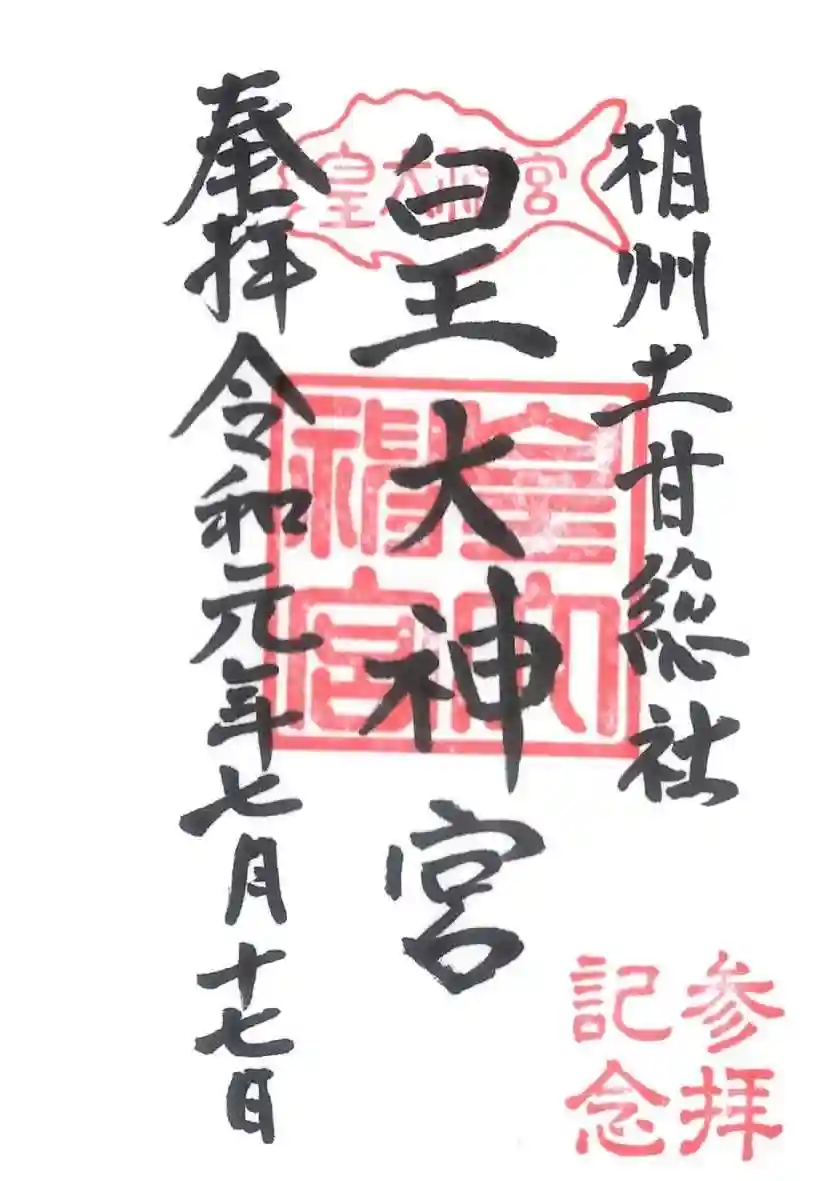 相州土甘総社
皇大神宮
奉拝
令和元年七月十七日
皇大神宮
皇大神宮
参拝
記念